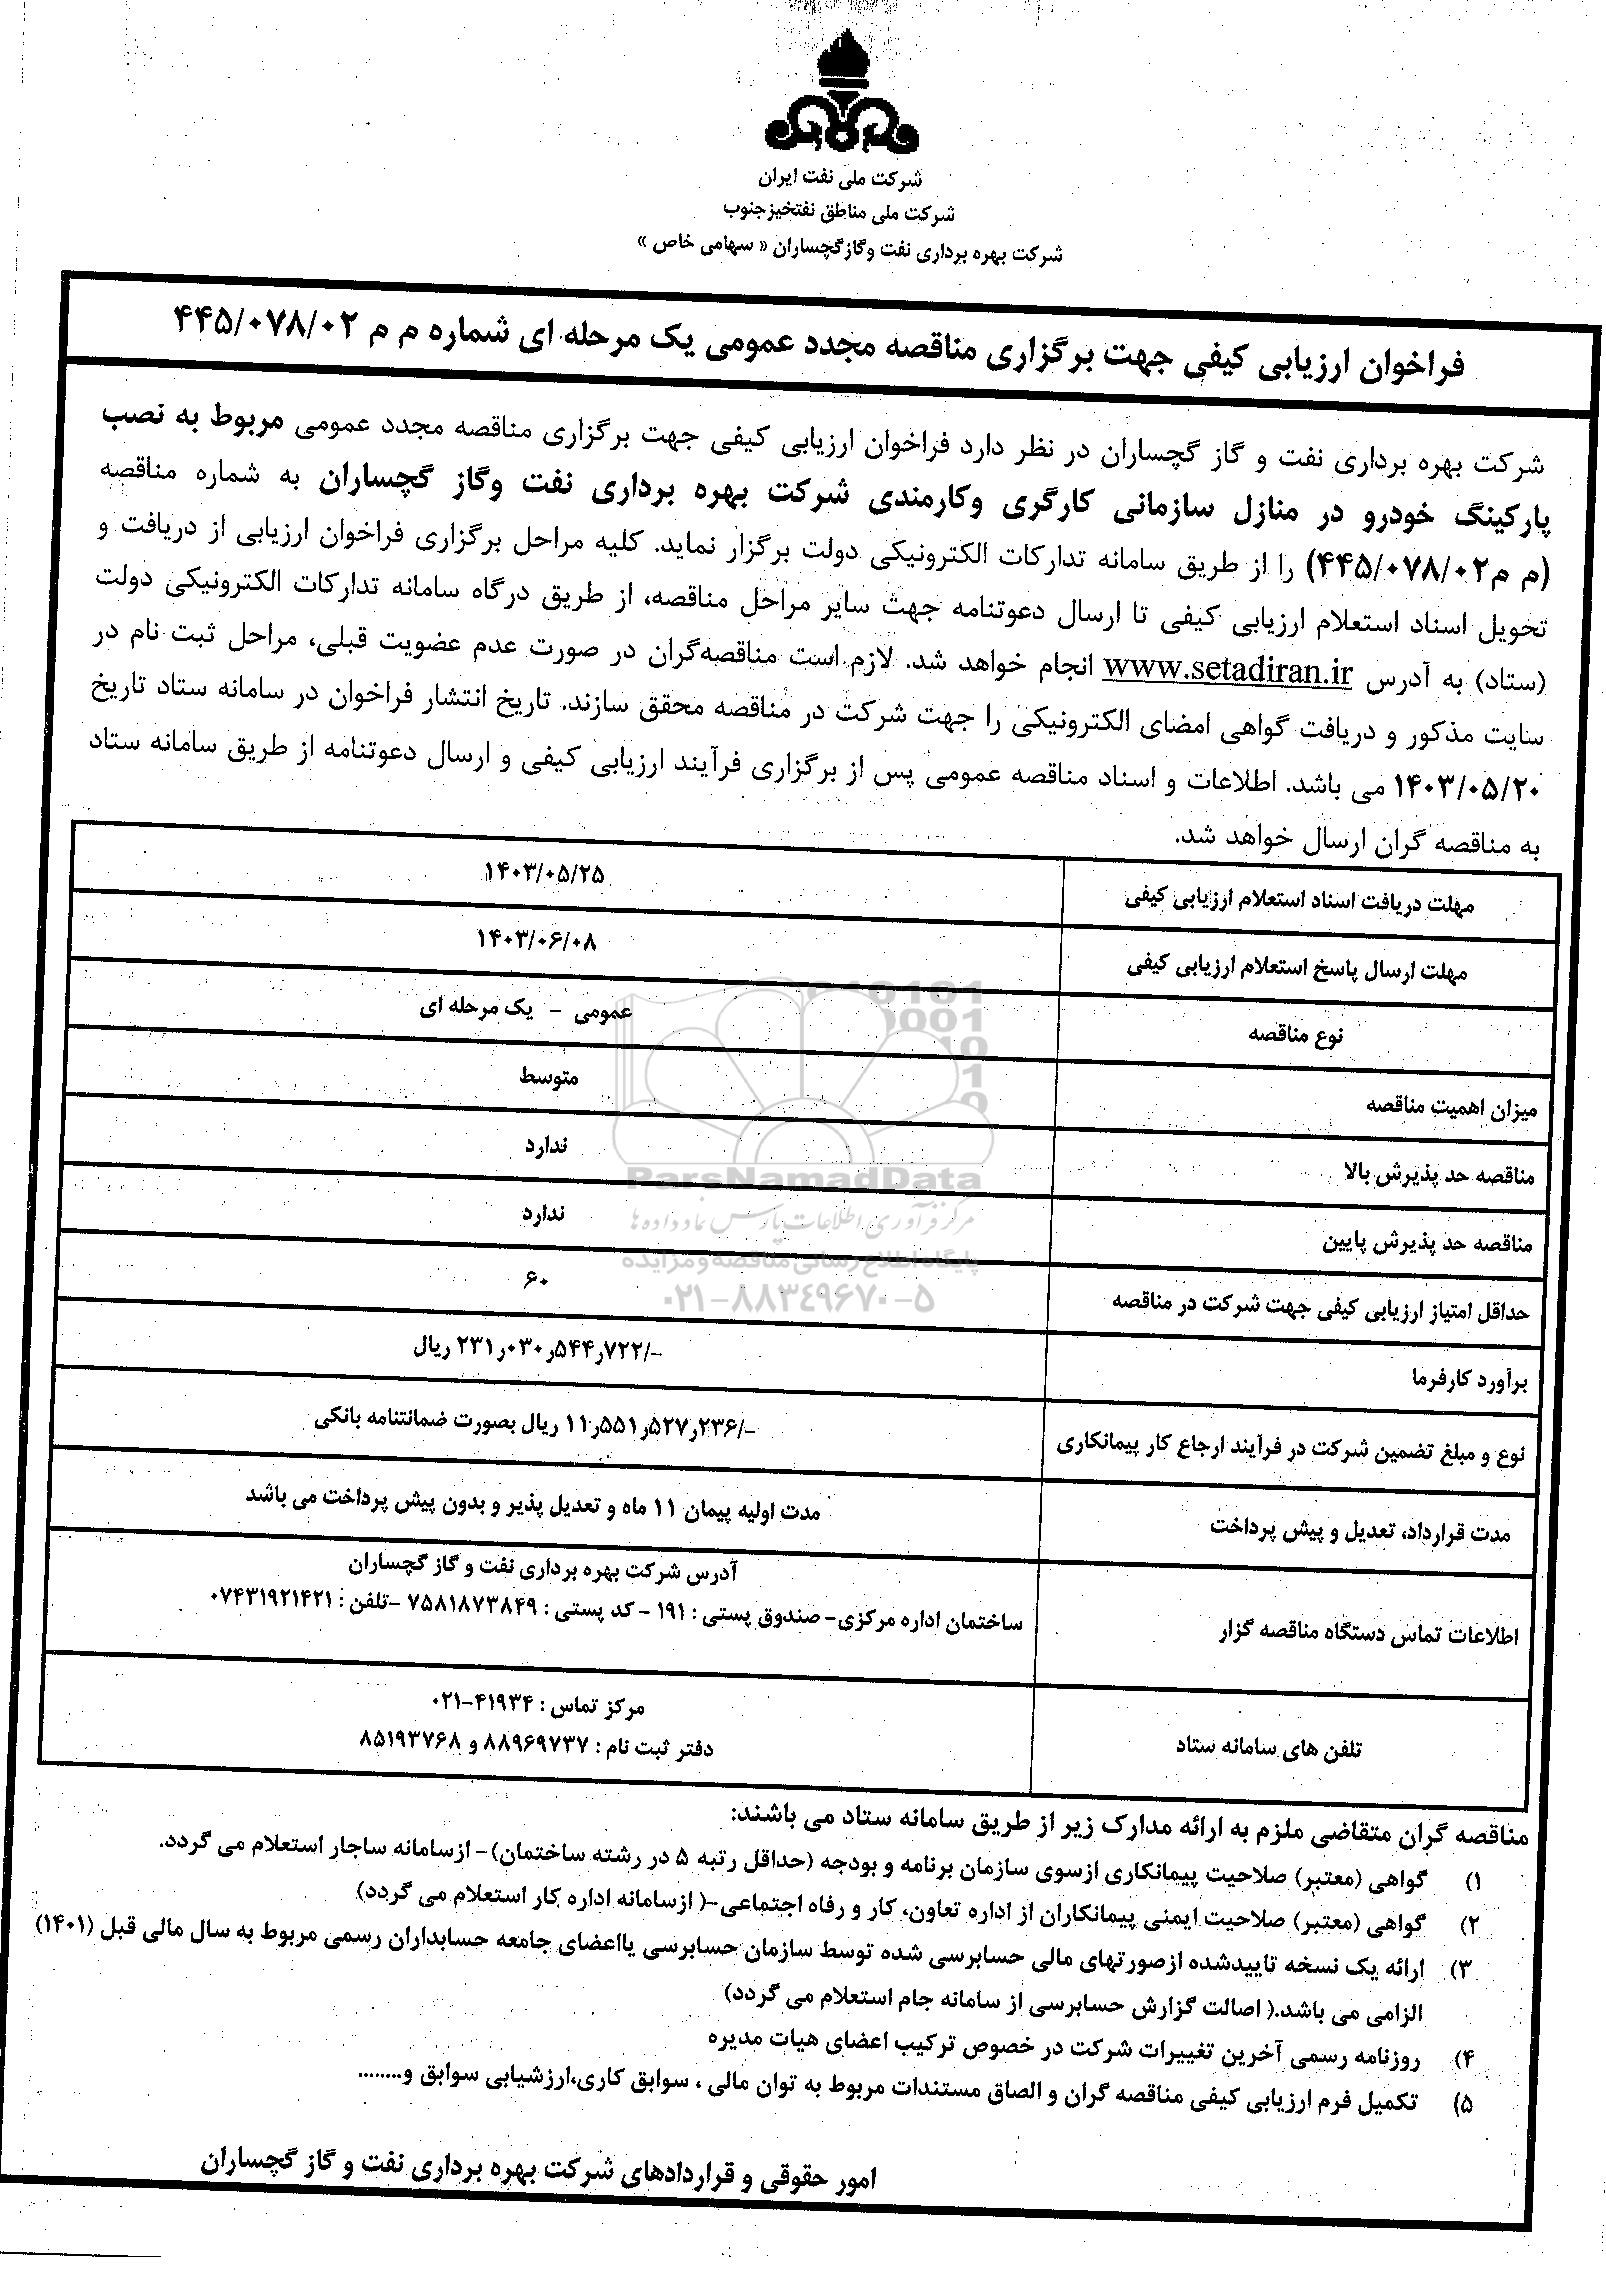 شرکت ملی نفت ایران
شرکت ملی مناطق نفتخیزجنوب
شرکت بهره برداری نفت وگازگچساران « سهامی خاص »
فراخوان ارزیابی کیفی جهت برگزاری مناقصه مجدد عمومی یک مرحله ای شماره م م ۴۴۵/۰۷۸/۰۲
شرکت بهره برداری نفت و گاز گچساران در نظر دارد فراخوان ارزیابی کیفی جهت برگزاری مناقصه مجدد عمومی مربوط به نصب
پارکینگ خودرو در منازل سازمانی کارگری وکارمندی شرکت بهره برداری نفت وگاز گچساران به شماره مناقصه
(م م۴۴۵/۰۷۸/۰۲) را از طریق سامانه تدارکات الکترونیکی دولت برگزار نماید. کلیه مراحل برگزاری فراخوان ارزیابی از دریافت و
تحویل اسناد استعلام ارزیابی کیفی تا ارسال دعوتنامه جهت سایر مراحل مناقصه، از طریق درگاه سامانه تدارکات الکترونیکی دولت
(ستاد) به آدرس www.setadiran.ir انجام خواهد شد. لازم است مناقصه‌گران در صورت عدم عضویت قبلی، مراحل ثبت نام در
سایت مذکور و دریافت گواهی امضای الکترونیکی را جهت شرکت در مناقصه محقق سازند. تاریخ انتشار فراخوان در سامانه ستاد تاریخ
۱۴۰۳/۰۵/۲۰ می باشد. اطلاعات و اسناد مناقصه عمومی پس از برگزاری فرآیند ارزیابی کیفی و ارسال دعوتنامه از طریق سامانه ستاد
به مناقصه گران ارسال خواهد شد.
مهلت دریافت اسناد استعلام ارزیابی کیفی ۱۴۰۳/۰۵/۲۵
مهلت ارسال پاسخ استعلام ارزیابی کیفی ۱۴۰۳/۰۶/۰۸
نوع مناقصه عمومی - یک مرحله ای
میزان اهمیت مناقصه متوسط
مناقصه حد پذیرش بالا ندارد
مناقصه حد پذیرش پایین ندارد
حداقل امتیاز ارزیابی کیفی جهت شرکت در مناقصه ۶۰
برآورد کارفرما ۲۳۱٫۰۳۰٫۵۴۴٫۷۲۲/- ریال
نوع و مبلغ تضمین شرکت در فرآیند ارجاع کار پیمانکاری ۱۱٫۵۵۱٫۵۲۷٫۲۳۶/- ریال بصورت ضمانتنامه بانکی
مدت قرارداد، تعدیل و پیش پرداخت مدت اولیه پیمان ۱۱ ماه و تعدیل پذیر و بدون پیش پرداخت می باشد
اطلاعات تماس دستگاه مناقصه گزار آدرس شرکت بهره برداری نفت و گاز گچساران
ساختمان اداره مرکزی- صندوق پستی : ۱۹۱ - کد پستی : ۷۵۸۱۸۷۳۸۴۹ -تلفن : ۰۷۴۳۱۹۲۱۴۲۱
تلفن های سامانه ستاد مرکز تماس : ۴۱۹۳۴-۰۲۱
دفتر ثبت نام : ۸۸۹۶۹۷۳۷ و ۸۵۱۹۳۷۶۸
ParsNamadData
مرکز فرآوری اطلاعات پارس نماد داده ها
پایگاه اطلاع رسانی مناقصه و مزایده
۰۲۱-۸۸۳۴۹۶۷۰-۵
مناقصه گران متقاضی ملزم به ارائه مدارک زیر از طریق سامانه ستاد می باشند:
۱) گواهی (معتبر) صلاحیت پیمانکاری ازسوی سازمان برنامه و بودجه (حداقل رتبه ۵ در رشته ساختمان)- ازسامانه ساجار استعلام می گردد.
۲) گواهی (معتبر) صلاحیت ایمنی پیمانکاران از اداره تعاون، کار و رفاه اجتماعی-( ازسامانه اداره کار استعلام می گردد)
۳) ارائه یک نسخه تاییدشده ازصورتهای مالی حسابرسی شده توسط سازمان حسابرسی یااعضای جامعه حسابداران رسمی مربوط به سال مالی قبل (۱۴۰۱)
الزامی می باشد.( اصالت گزارش حسابرسی از سامانه جام استعلام می گردد)
۴) روزنامه رسمی آخرین تغییرات شرکت در خصوص ترکیب اعضای هیات مدیره
۵) تکمیل فرم ارزیابی کیفی مناقصه گران و الصاق مستندات مربوط به توان مالی ، سوابق کاری،ارزشیابی سوابق و........
امور حقوقی و قراردادهای شرکت بهره برداری نفت و گاز گچساران